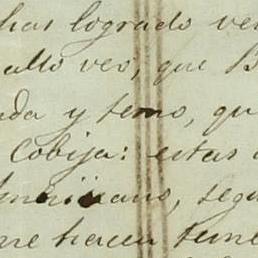 has logrado ve
alto ves, que B
da y temo, qu
Cobija: estas
segu
me hacen teme